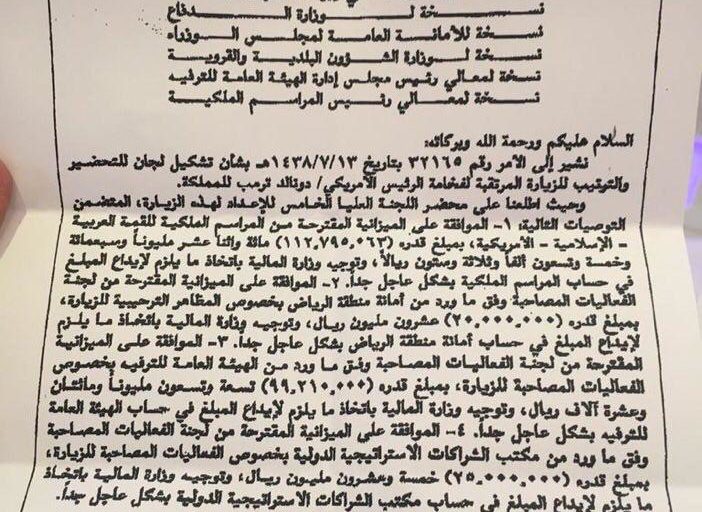 نسخة لوزارة الدفاع
نسخة للأمانة العامة لمجلس الوزراء
نسخة لوزارة الشؤون البلدية والقروية
نسخة لمعالي رئيس مجلس إدارة الهيئة العامة للترفيه
نسخة لمعالي رئيس المراسم الملكية
السلام عليكم ورحمة الله وبركاته:
نشير إلى الأمر رقم ٣٢١٦٥ بتاريخ ١٤٣٨/٧/١٣هـ بشأن تشكيل لجان للتحضير
والترتيب للزيارة المرتقبة لفخامة الرئيس الأمريكي/ دونالد ترمب للمملكة.
وحيث اطلعنا على محضر اللجنة العليا الخامس للإعداد لهذه الزيارة، المتضمن
التوصيات التالية: ١- الموافقة على الميزانية المقترحة من المراسم الملكية للقمة العربية
- الإسلامية - الأمريكية، بمبلغ قدره (١١٢,٧٩٥,٠٦٣) مائة واثنا عشر مليوناً وسبعمائة
وخمسة وتسعون ألفاً وثلاثة وستون ريالاً، وتوجيه وزارة المالية باتخاذ ما يلزم لإيداع المبلغ
في حساب المراسم الملكية بشكل عاجل جداً. ٢- الموافقة على الميزانية المقترحة من لجنة
الفعاليات المصاحبة وفق ما ورد من أمانة منطقة الرياض بخصوص المظاهر الترحيبية للزيارة،
بمبلغ قدره (٢٠,٠٠٠,٠٠٠) عشرون مليون ريال، وتوجيه وزارة المالية باتخاذ ما يلزم
لإيداع المبلغ في حساب أمانة منطقة الرياض بشكل عاجل جداً. ٣- الموافقة على الميزانية
المقترحة من لجنة الفعاليات المصاحبة وفق ما ورد من الهيئة العامة للترفيه بخصوص
الفعاليات المصاحبة للزيارة، بمبلغ قدره (٩٩,٢١٠,٠٠٠) تسعة وتسعون مليوناً ومائتان
وعشرة آلاف ريال، وتوجيه وزارة المالية باتخاذ ما يلزم لإيداع المبلغ في حساب الهيئة العامة
للترفيه بشكل عاجل جداً. ٤- الموافقة على الميزانية المقترحة من لجنة الفعاليات المصاحبة
وفق ما ورد من مكتب الشراكات الاستراتيجية الدولية بخصوص الفعاليات المصاحبة للزيارة،
بمبلغ قدره (٢٥,٠٠٠,٠٠٠) خمسة وعشرون مليون ريال، وتوجيه وزارة المالية باتخاذ
ما يلزم لإيداع المبلغ في حساب مكتب الشراكات الاستراتيجية الدولية بشكل عاجل جداً.